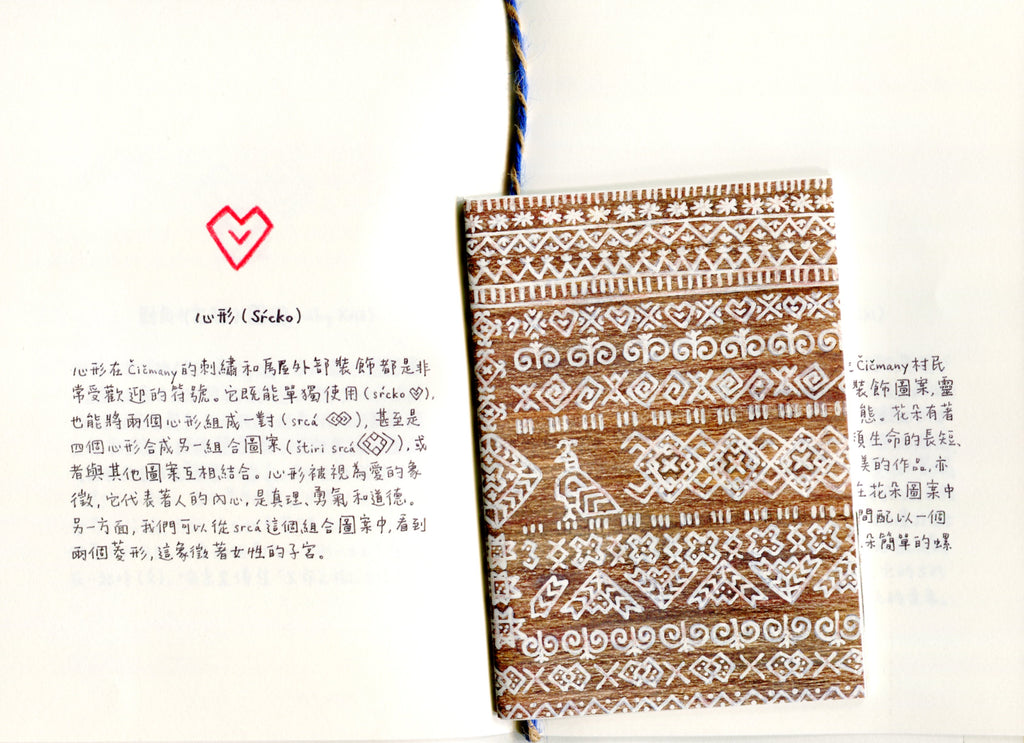 心形 (Sŕcko)
心形在 Čičmany 的刺繡和房屋外部裝飾都是非
常受歡迎的符號。它既能單獨使用 (sŕcko ♡),
也能將兩個心形組成一對 (srcá), 甚至是
四個心形合成另一組合圖案 (štiri srcá), 或
者與其他圖案互相結合。心形被視為愛的象
徵, 它代表著人的內心, 是真理、勇氣和道德。
另一方面, 我們可以從 srcá 這個組合圖案中, 看到
兩個菱形, 這象徵著女性的子宮。
Čičmany 村民
裝飾圖案, 靈
態。花朵有著
生命的長短、
美的作品, 亦
花朵圖案中
間配以一個
朵簡單的螺